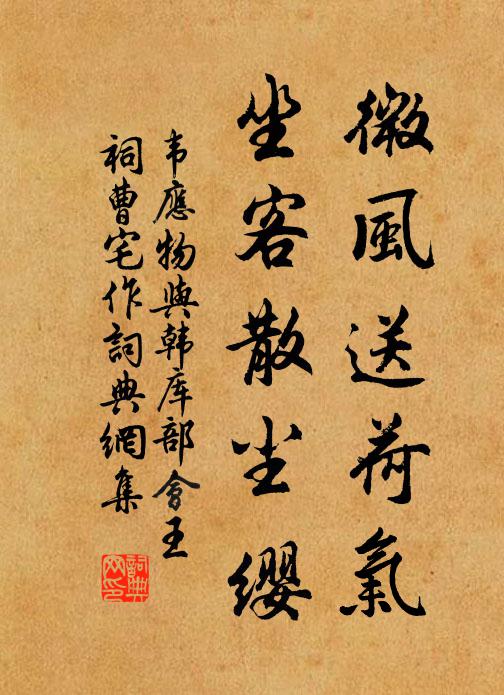 微風送荷氣
坐客散尘纓
韦應物與韩库部會王
祠曹宅作詞典網集
詞典网印